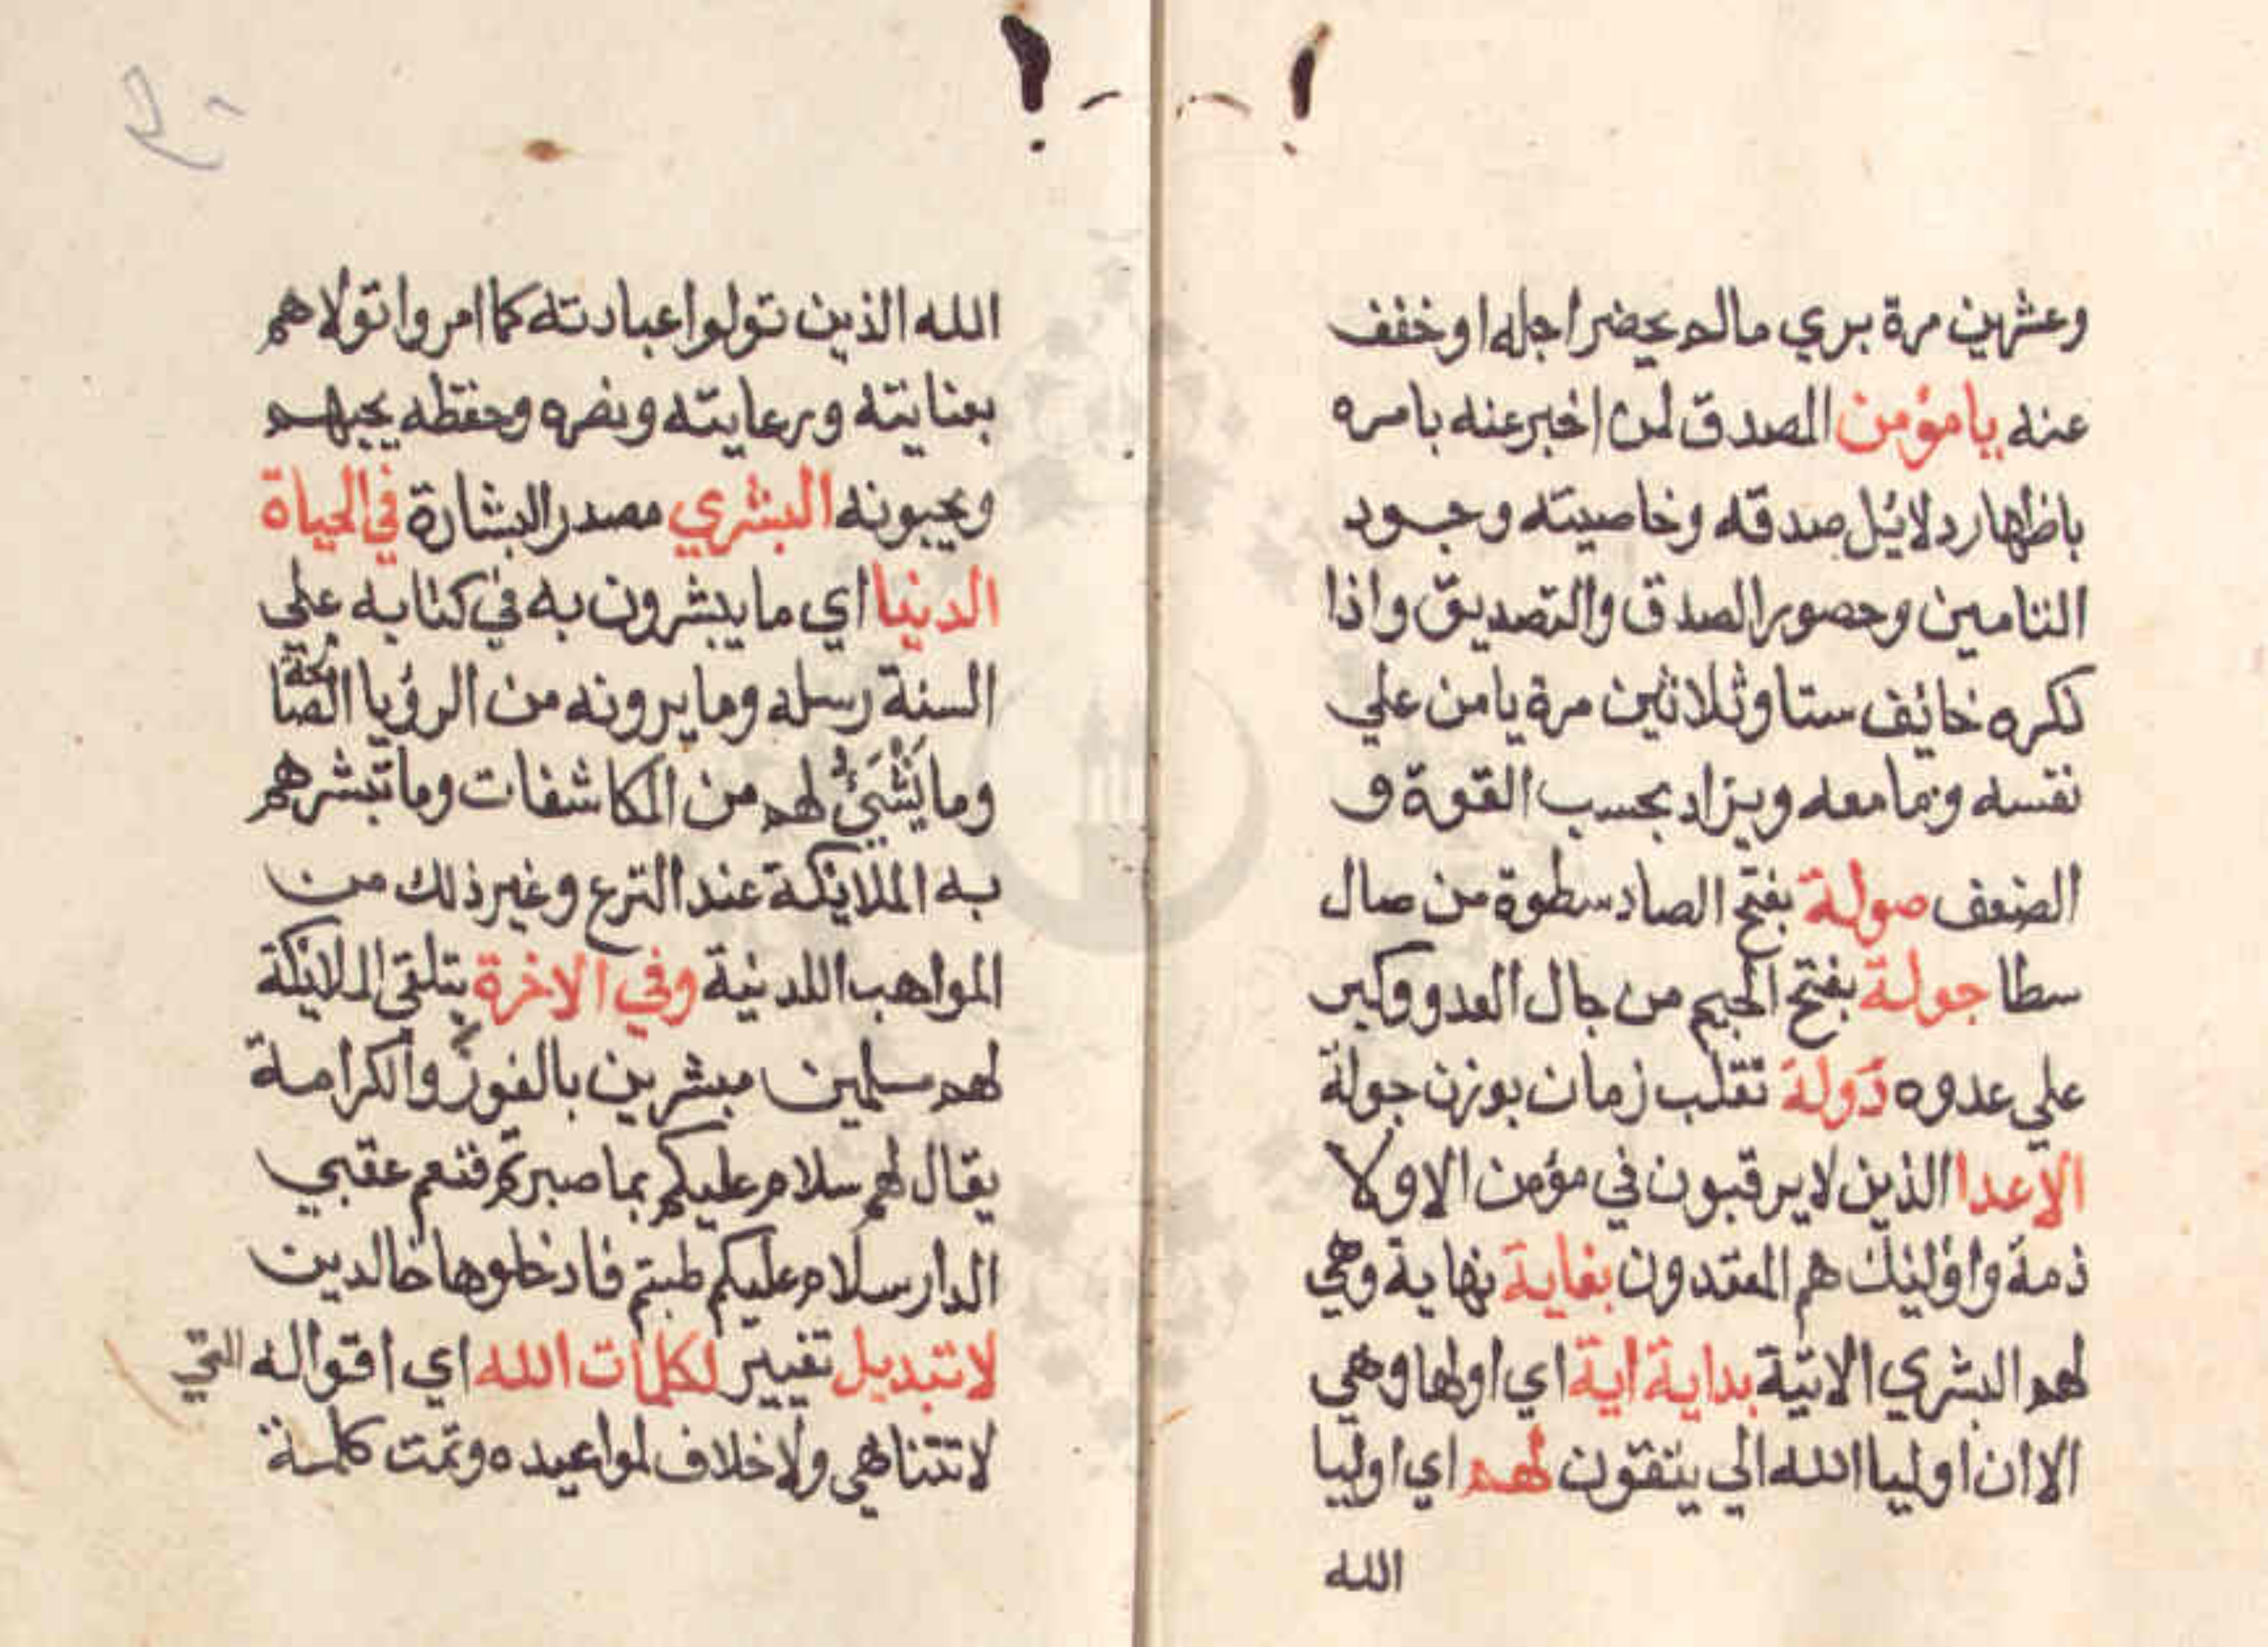 وعشرين مرة بري مالم يحضر اجله او خفف
عنه يا مؤمن المصدق لمن اخبر عنه بامره
باظهار دلائل صدقه وخاصيته وجود
التامين وحصور الصدق والتصديق واذا
ذكره خائف ستا وثلاثين مرة يامن علي
نفسه وبما معه ويزاد بحسب القوة و
الضعف صولة بفتح الصاد سطوة من صال
سطا جولة بفتح الجيم من جال العدو وكبر
علي عدوه دولة تقلب زمان بوزن جولة
الاعدا الذين لا يرقبون في مؤمن الا ولا
ذمة واولئك هم المعتدون بغاية نهاية وهي
لهم البشري الاتية بداية اية اي اولها وهي
الا ان اوليا الله الي يتقون لهم اي اوليا
الله
الله الذين تولوا عبادته كما امروا تولاهم
بعنايته ورعايته ونصره وحفظه يحبهم
ويحبونه البشري مصدر البشارة في الحياة
الدنيا اي ما يبشرون به في كتابه علي
السنة رسله وما يرونه من الرؤيا الصالحة
وما لهم من المكاشفات وما تبشرهم
به الملائكة عند النزع وغير ذلك من
المواهب اللدنية وفي الاخرة يتلقي الملائكة
لهم مسلمين مبشرين بالفوز والكرامة
يقال لهم سلام عليكم بما صبرتم فنعم عقبي
الدار سلام عليكم طبتم فادخلوها خالدين
لا تبديل تغيير لكلمات الله اي اقواله التي
لا تتناهي ولا خلاف لمواعيده وتمت كلمة